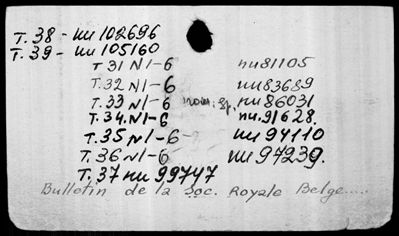 T. 38 - nu 102696
T. 39 - nu 105160
T 31 N1-6 nu 81105
T. 32 N1-6 nu 83689
T. 33 N1-6 nu 86031
T. 34. N1-6 nu. 91628.
T. 35 N1-6 nu 94110
T. 36 N1-6 nu 97239.
T. 37 nu 99747
Bulletin de la Soc. Royale Belge.....